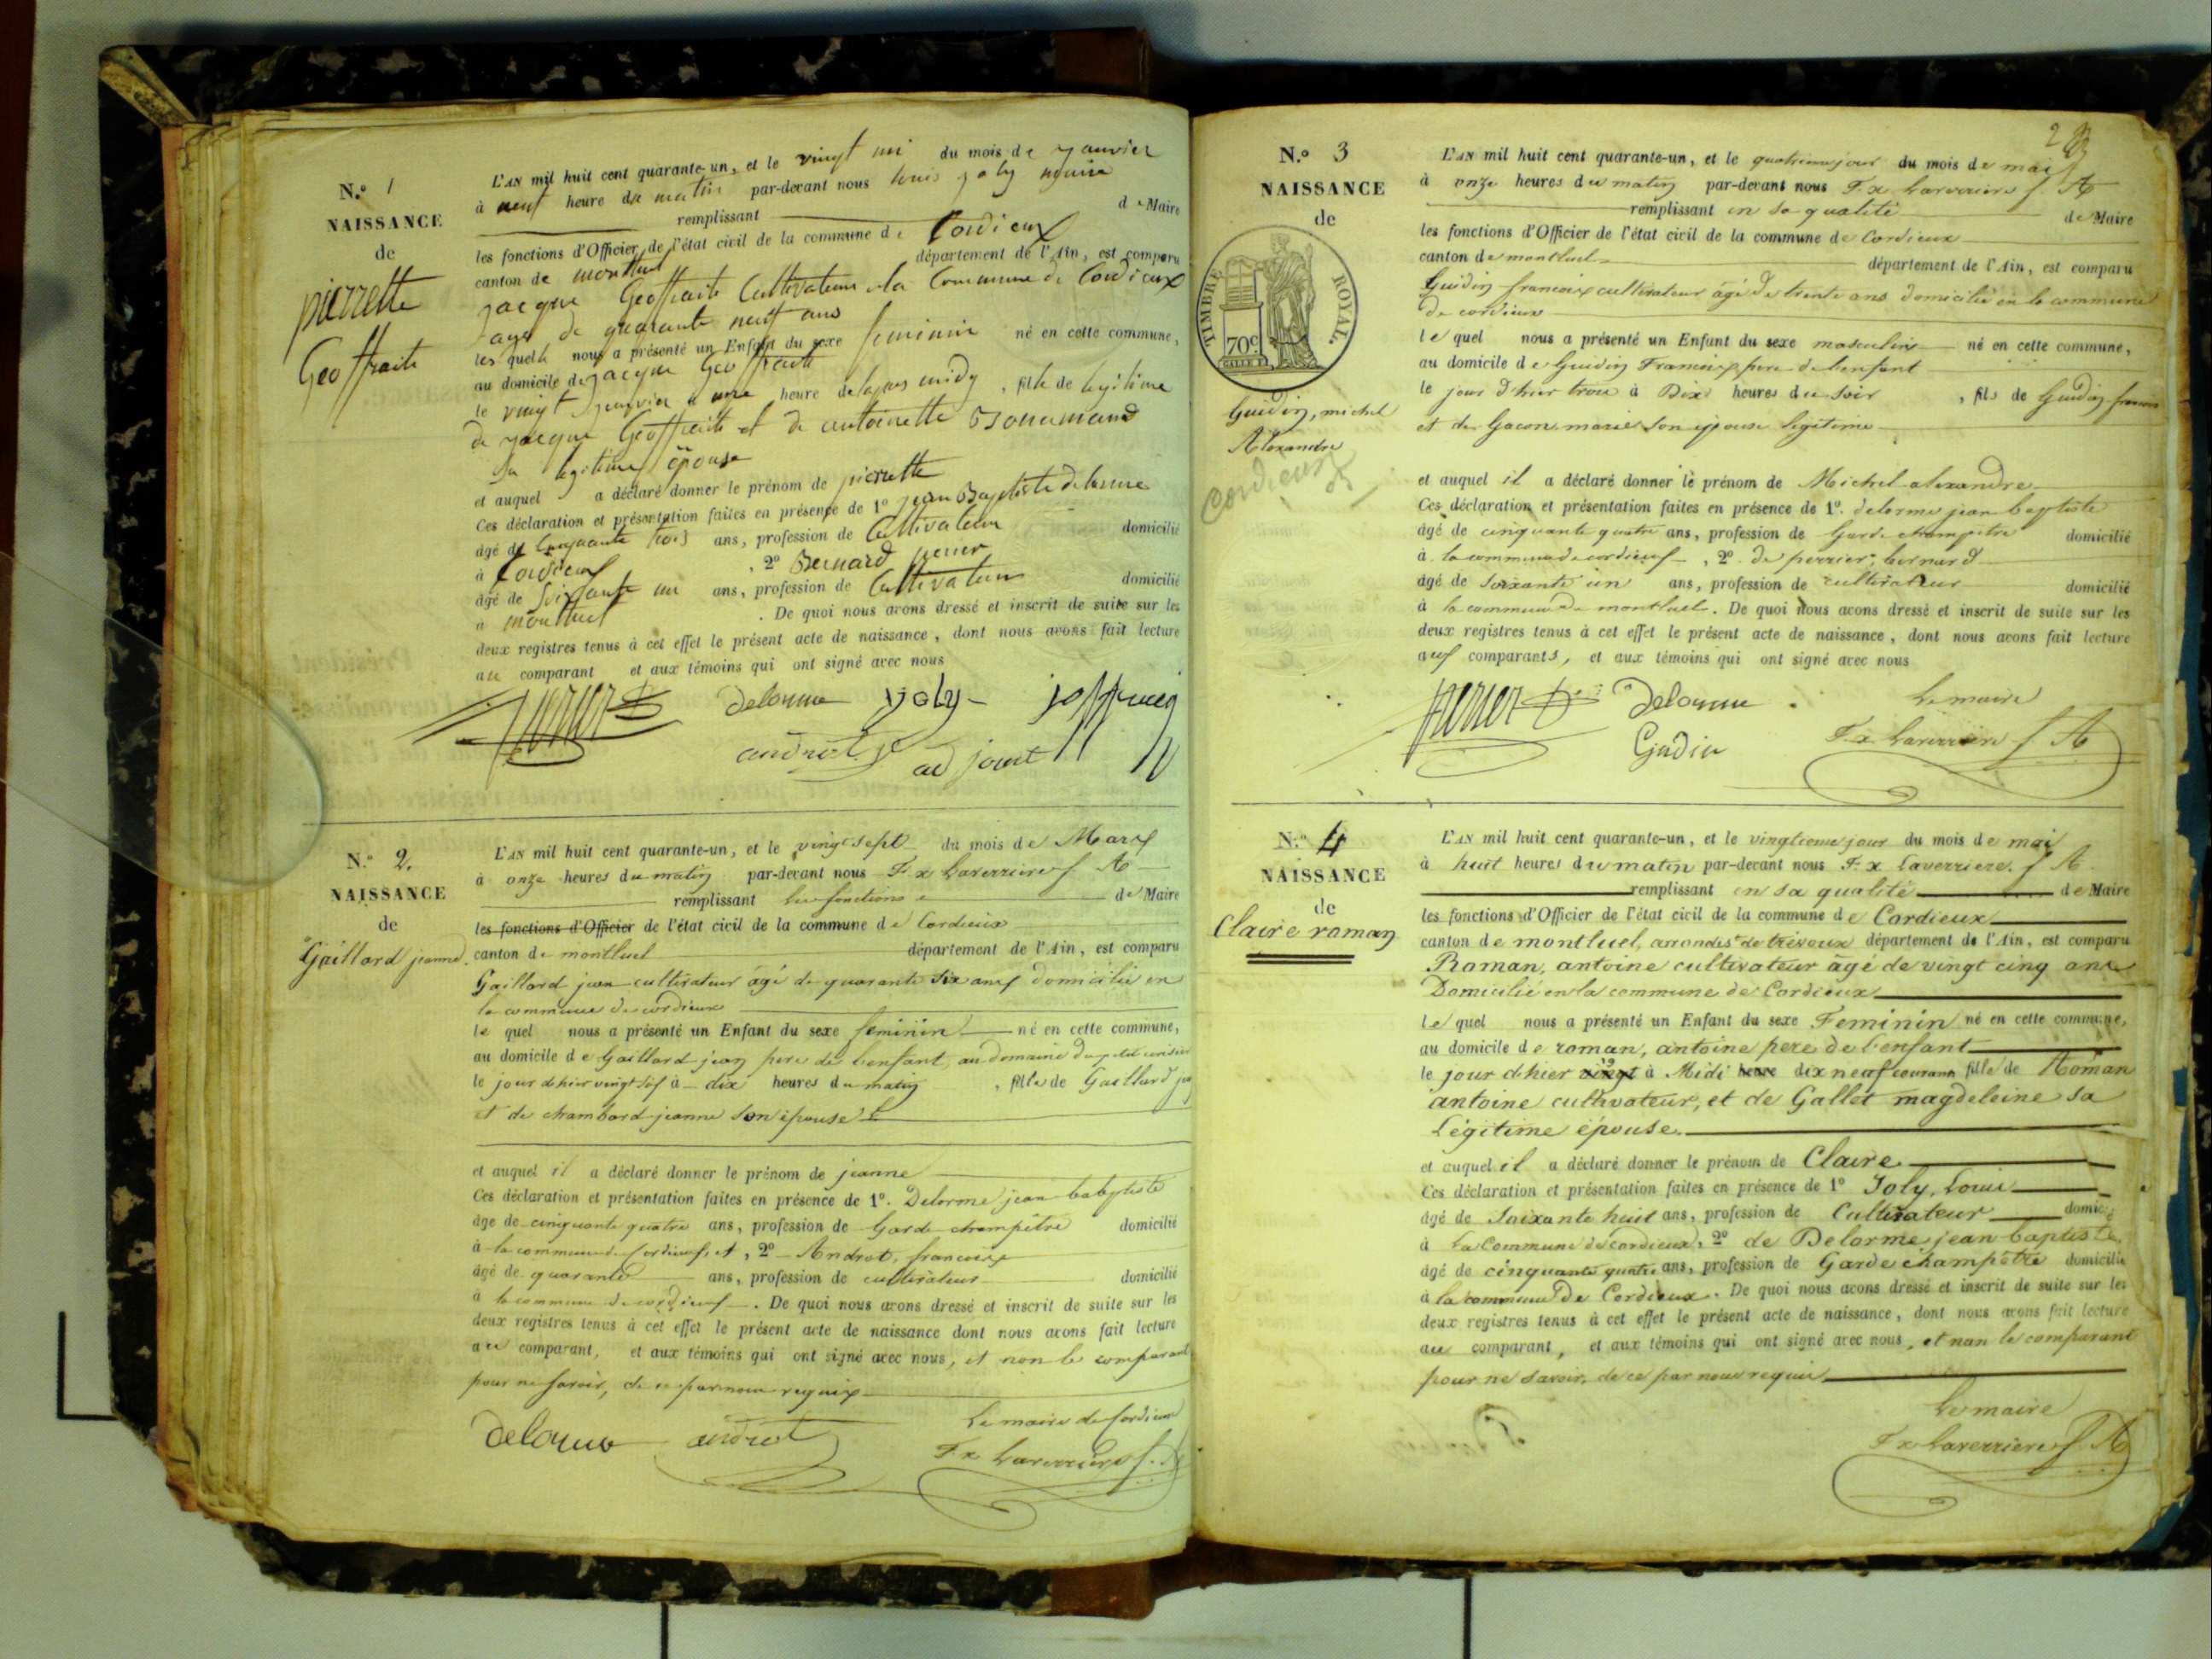 N.º 1
NAISSANCE
de
pierrette
Geoffraite
L'AN mil huit cent quarante-un, et le vingt un du mois de janvier
à neuf heure du matin par-devant nous louis joly maire
remplissant d e Maire
les fonctions d'Officier de l'état civil de la commune de Cordieux
canton de montluel département de l'Ain, est comparu
jacque Geoffraite Cultivateur de la Commune de Cordieux
agé de quarante neuf ans
lequel nous a présenté un Enfant du sexe feminin né en cette commune,
au domicile de jacque Geoffraite
le vingt janvier a une heure de lapres midy, fille de legitime
de jacque Geoffraite et de antoinette Bonnamand
Sa legitime épouse
et auquel a déclaré donner le prénom de pierrette
Ces déclaration et présentation faites en présence de 1º jean Baptiste delorme
âgé de Cinquante trois ans, profession de Cultivateur domicilié
à Cordieux, 2º Bernard perrier
âgé de Soixante un ans, profession de Cultivateur domicilié
à montluel. De quoi nous avons dressé et inscrit de suite sur les
deux registres tenus à cet effet le présent acte de naissance, dont nous avons fait lecture
au comparant et aux témoins qui ont signé avec nous
perier delorme joly
androt adjoint
N.º 2.
NAISSANCE
de
Gaillard jeanne.
L'AN mil huit cent quarante-un, et le vingt sept du mois de Mars
à onze heures du matin par-devant nous F. x Laverriere f A
remplissant les fonctions de Maire
les fonctions d'Officier de l'état civil de la commune de Cordieux
canton de montluel département de l'Ain, est comparu
Gaillard jean cultivateur âgé de quarante six ans domicilié en
la commune de cordieux
le quel nous a présenté un Enfant du sexe feminin né en cette commune,
au domicile de Gaillard jean pere de lenfant, au domaine du petit
le jour dhier vingt six à dix heures du matin, fille de Gaillard
et de chambard jeanne Son épouse L
et auquel il a déclaré donner le prénom de jeanne
Ces déclaration et présentation faites en présence de 1º. Delorme jean babptiste
âge de cinquante quatre ans, profession de Garde champêtre domicilié
à la commune de Cordieux, et, 2º Androt, francois
âgé de quarante ans, profession de cultivateur domicilié
à la commune de cordieux. De quoi nous avons dressé et inscrit de suite sur les
deux registres tenus à cet effet le présent acte de naissance dont nous avons fait lecture
au comparant, et aux témoins qui ont signé avec nous, et non le comparant
pour ne savoir, de ce par nous requis
Le maire de Cordieux
delorme androt F. x Laverriere f. A
N.º 3
NAISSANCE
de
TIMBRE ROYAL
70c.
Guidin, michel
Alexandre
Cordieux
L'AN mil huit cent quarante-un, et le quatrieme jour du mois de mai
à onze heures du matin par-devant nous F. x Laverriere f A
remplissant en sa qualité de Maire
les fonctions d'Officier de l'état civil de la commune de Cordieux
canton de montluel département de l'Ain, est comparu
Guidin francois cultivateur âgé de trente ans domicilié en la commune
de cordieux
le quel nous a présenté un Enfant du sexe masculin né en cette commune,
au domicile de Guidin Francois pere de lenfant
le jour d'hier trois à Dix heures du soir, fils de Guidin
et de Gacon marie Son épouse legitime
et auquel il a déclaré donner le prénom de Michel alexandre
Ces déclaration et présentation faites en présence de 1º. delorme jean baptiste
âgé de cinquante quatre ans, profession de Garde champêtre domicilié
à la commune de cordieux, 2º. de perrier, bernard
âgé de Soixante un ans, profession de cultivateur domicilié
à la commune de montluel. De quoi nous avons dressé et inscrit de suite sur les
deux registres tenus à cet effet le présent acte de naissance, dont nous avons fait lecture
aux comparants, et aux témoins qui ont signé avec nous
perier Delorme Le maire
Gudin F. x Laverriere f A
N.º 4
NAISSANCE
de
Claire roman
L'AN mil huit cent quarante-un, et le vingtieme jour du mois de mai
à huit heures du matin par-devant nous F. x Laverriere. f A.
remplissant en sa qualité de Maire
les fonctions d'Officier de l'état civil de la commune de Cordieux
canton de montluel, arrondist de trevoux département de l'Ain, est comparu
Roman, antoine cultivateur âgé de vingt cinq ans
Domicilié en la commune de Cordieux
le quel nous a présenté un Enfant du sexe Feminin né en cette commune,
au domicile de roman, antoine pere de l'enfant
le jour d'hier vingt à Midi heure dix neuf courant fille de Roman
antoine cultivateur, et de Gallet magdeleine sa
Légitime épouse.
et auquel il a déclaré donner le prénom de Claire
Ces déclaration et présentation faites en présence de 1º Joly, Louis
âgé de Soixante huit ans, profession de Cultivateur domicilié
à La Commune de cordieux, 2º de Delorme jean baptiste,
âgé de cinquante quatre ans, profession de Garde champêtre domicilié
à la commune De Cordieux. De quoi nous avons dressé et inscrit de suite sur les
deux registres tenus à cet effet le présent acte de naissance, dont nous avons fait lecture
au comparant, et aux témoins qui ont signé avec nous, et non le comparant
pour ne savoir, de ce par nous requis
Le maire
F x Laverriere f A